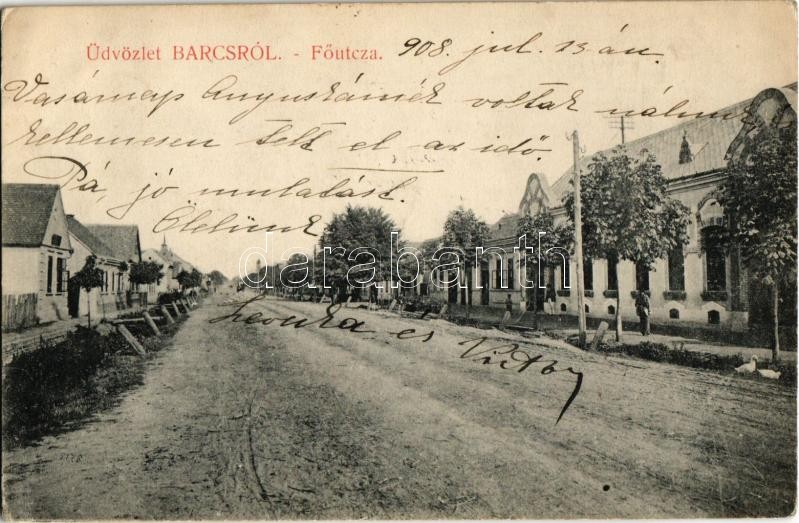 Üdvözlet BARCSRÓL. - Főutcza. 908. jul. 13 án.
Vasárnap Anyuskámék voltak nálunk
kellemesen telt el az idő.
Pá, jó mulatást.
Ölelünk
darabanth
Leonka és